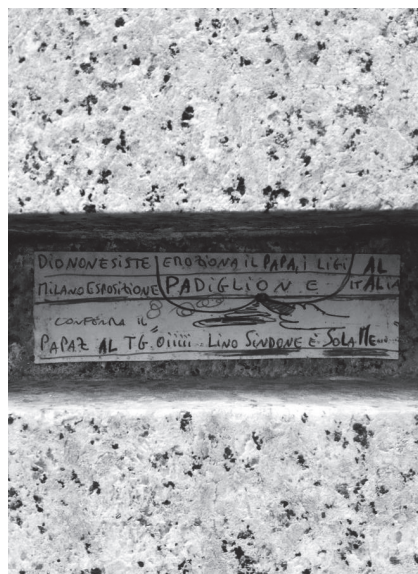 DIO NON ESISTE EMOZIONA IL PAPA, I LIGI AL
MILANO ESPOSIZIONE PADIGLIONE ITALIA
CONFERMA IL
PAPAZ AL TG. Oiiiii LINO SINDONE È SOLA ME...